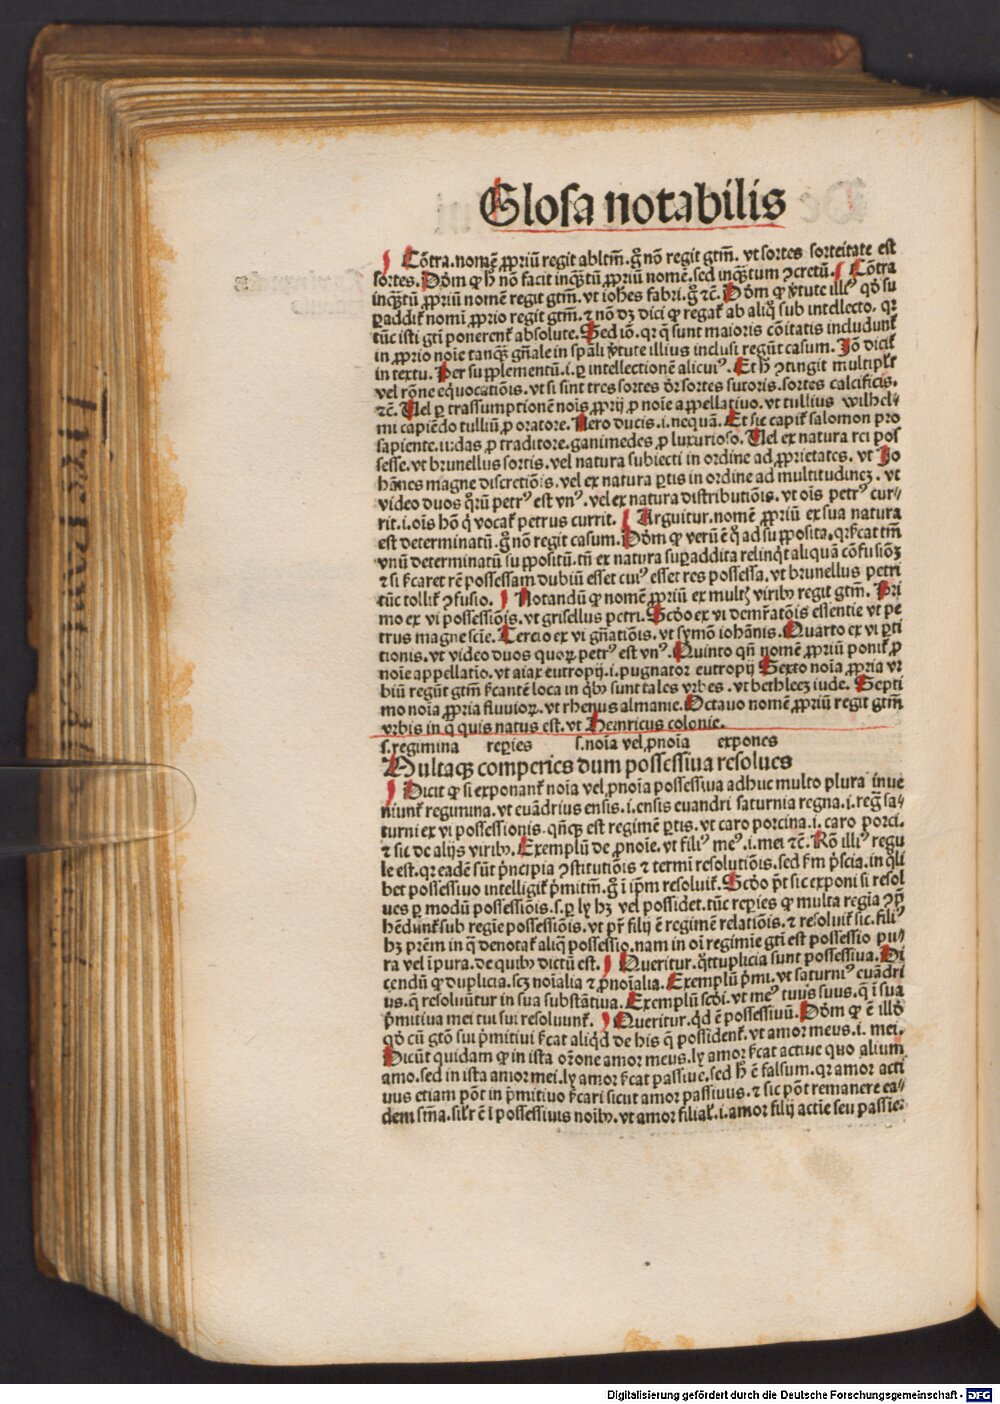 Glosa notabilis
Cõtra. nomẽ ꝓpriũ regit abltm̃. g̊ nõ regit gtm̃. vt sortes sorteitate est
sortes. Dõm ꝙ h̊ nõ facit inq̃tũ ꝓpriũ nomẽ. sed inq̃tum ꝯcretũ. Cõtra
inq̃tũ ꝓpriũ nomẽ regit gtm̃. vt iohes fabri. g̊ ⁊c̃. Dõm ꝙ v̾tute illiꝰ qđ su
ꝑaddit̉ nomĩ ꝓprio regit gtm̃. ⁊ nõ dꝫ dici ꝙ regat̉ ab aliq̊ sub intellecto. qꝛ
tũc isti gtĩ ponerent̉ absolute. Sed iõ. qꝛ q̃ sunt maioris cõitatis includunt̉
in ꝓprio noĩe tanq̃ gñale in spãli v̾tute illius inclusi regũt casum. Jõ dicit̉
in textu. Per supplementũ .i. ꝑ intellectionẽ alicuiꝰ. Et h̊ ꝯtingit multipl̉r
vel rõne eq̊uocatiõis. vt si sint tres sortes đr sortes sutoris. sortes calcificis.
⁊c̃. Uel ꝑ trassumptionẽ noĩs ꝓprij ꝓ noĩe appellatiuo. vt tullius wilhel⸗
mi capiẽdo tulliũ ꝓ oratore. Nero ducis .i. nequã. Et sic capit̉ salomon pro
sapiente. iudas ꝓ traditore. ganimedes ꝓ luxurioso. Uel ex natura rei pos
sesse. vt brunellus sortis. vel natura subiecti in ordine ad ꝓprietates. vt Jo
hãnes magne discretiõis. vel ex natura ꝑtis in ordine ad multitudinẽ. vt
video duos q̊rũ petrꝰ est vnꝰ. vel ex natura distributiõis. vt oĩs petrꝰ cur⸗
rit .i. oĩs hõ q̇ vocat̉ petrus currit. Arguitur. nomẽ ꝓpriũ ex sua natura
est determinatũ. g̊ nõ regit casum. Dõm ꝙ verũ ẽ q̊ ad supposita. qꝛ s̉cat tm̃
vnũ determinatũ suppositũ. tñ ex natura suꝑaddita relinq̇t aliquã cõfusiõꝫ
⁊ si s̉caret rẽ possessam dubiũ esset cuiꝰ esset res possessa. vt brunellus petri
tũc tollit̉ ꝯfusio. Notandũ ꝙ nomẽ ꝓpriũ ex multꝭ viribꝰ regit gtm̃. Pri
mo ex vi possessiõis. vt grisellus petri. Scđo ex vi demr̃atõis essentie vt pe
trus magne scĩe. Tercio ex vi gñatiõis. vt symõ iohãnis. Quarto ex vi ꝑti
tionis. vt video duos quoꝝ petrꝰ est vnꝰ. Quinto qñ nomẽ ꝓpriũ ponit̉ ꝓ
noĩe appellatio. vt aiax eutropij .i. pugnator eutropij Sexto noĩa ꝓpria vr
biũ regũt gtm̃ s̉cantẽ loca in q̇bꝰ sunt tales vrbes. vt bethleeꝫ iude. Septi
mo noĩa ꝓpria fluuioꝝ. vt rhenus almanie. Octauo nomẽ ꝓpriũ regit gtm̃
vrbis in q̃ quis natus est. vt Heinricus colonie.
s. regimina reꝑies s. noĩa vel ꝓnoĩa expones
Multaqꝫ comperies dum possessiua resolues
Dicit ꝙ si exponant̉ noĩa vel ꝓnoĩa possessiua adhuc multo plura inue
niunt̉ regimina. vt euãdrius ensis .i. ensis euandri saturnia regna .i. reg̃ sa⸗
turni ex vi possessionis. qñqꝫ est regimẽ ꝑtis. vt caro porcina .i. caro porci.
⁊ sic de alijs viribꝰ. Exemplũ de ꝓnoĩe. vt filiꝰ meꝰ .i. mei ⁊c̃. Rõ illiꝰ regu
le est. qꝛ eadẽ sũt p̉ncipia ꝯstitutiõis ⁊ termĩ resolutiõis. sed s̉m p̉scia. in q̃li
bet possessiuo intelligit̉ p̉mitiũ. g̊ ĩ ip̃m resoluit̉. Scđo p̃t sic exponi si resol
ues ꝑ modũ possessiõis .s. ꝑ ly hꝫ vel possidet. tũc reꝑies ꝙ multa regĩa ꝯp̃
hẽdunt̉ sub regĩe possessiõis. vt pr̃ filij ẽ regimẽ relatiõis. ⁊ resoluit̉ sic. filiꝰ
hꝫ prẽm in q̃ denotat̉ aliq̃ possessio. nam in oĩ regimĩe gtĩ est possessio pu⸗
ra vel ĩpura. de quibꝰ dictũ est. Queritur. q̊tuplicia sunt possessiua. Di
cendũ ꝙ duplicia. scꝫ noĩalia ⁊ ꝓnoĩalia. Exemplũ p̉mi. vt saturniꝰ euãdri
us. q̃ resoluũtur in sua substãtiua. Exemplũ scđi. vt meꝰ tuus suus. q̃ ĩ sua
p̉mitiua mei tui sui resoluunt̉. Queritur. q̇d ẽ possessiuũ. Dõm ꝙ ẽ illđ
qđ cũ gtõ sui p̉mitiui s̉cat aliq̇d de his q̃ possident̉. vt amor meus .i. mei.
Dicũt quidam ꝙ in ista or̃one amor meus. ly amor s̉cat actiue quo alium
amo. sed in ista amor mei. ly amor s̉cat passiue. sed h̊ ẽ falsum. qꝛ amor acti
uus etiam põt in p̉mitiuo s̉cari sicut amor passiuus. ⁊ sic põt remanere ea⸗
dem sñia. sil̉r ẽ ĩ possessiuis noĩbꝰ. vt amor filial̉ .i. amor filij actiue seu passiue.
Digitalisierung gefördert durch die Deutsche Forschungsgemeinschaft - DFG